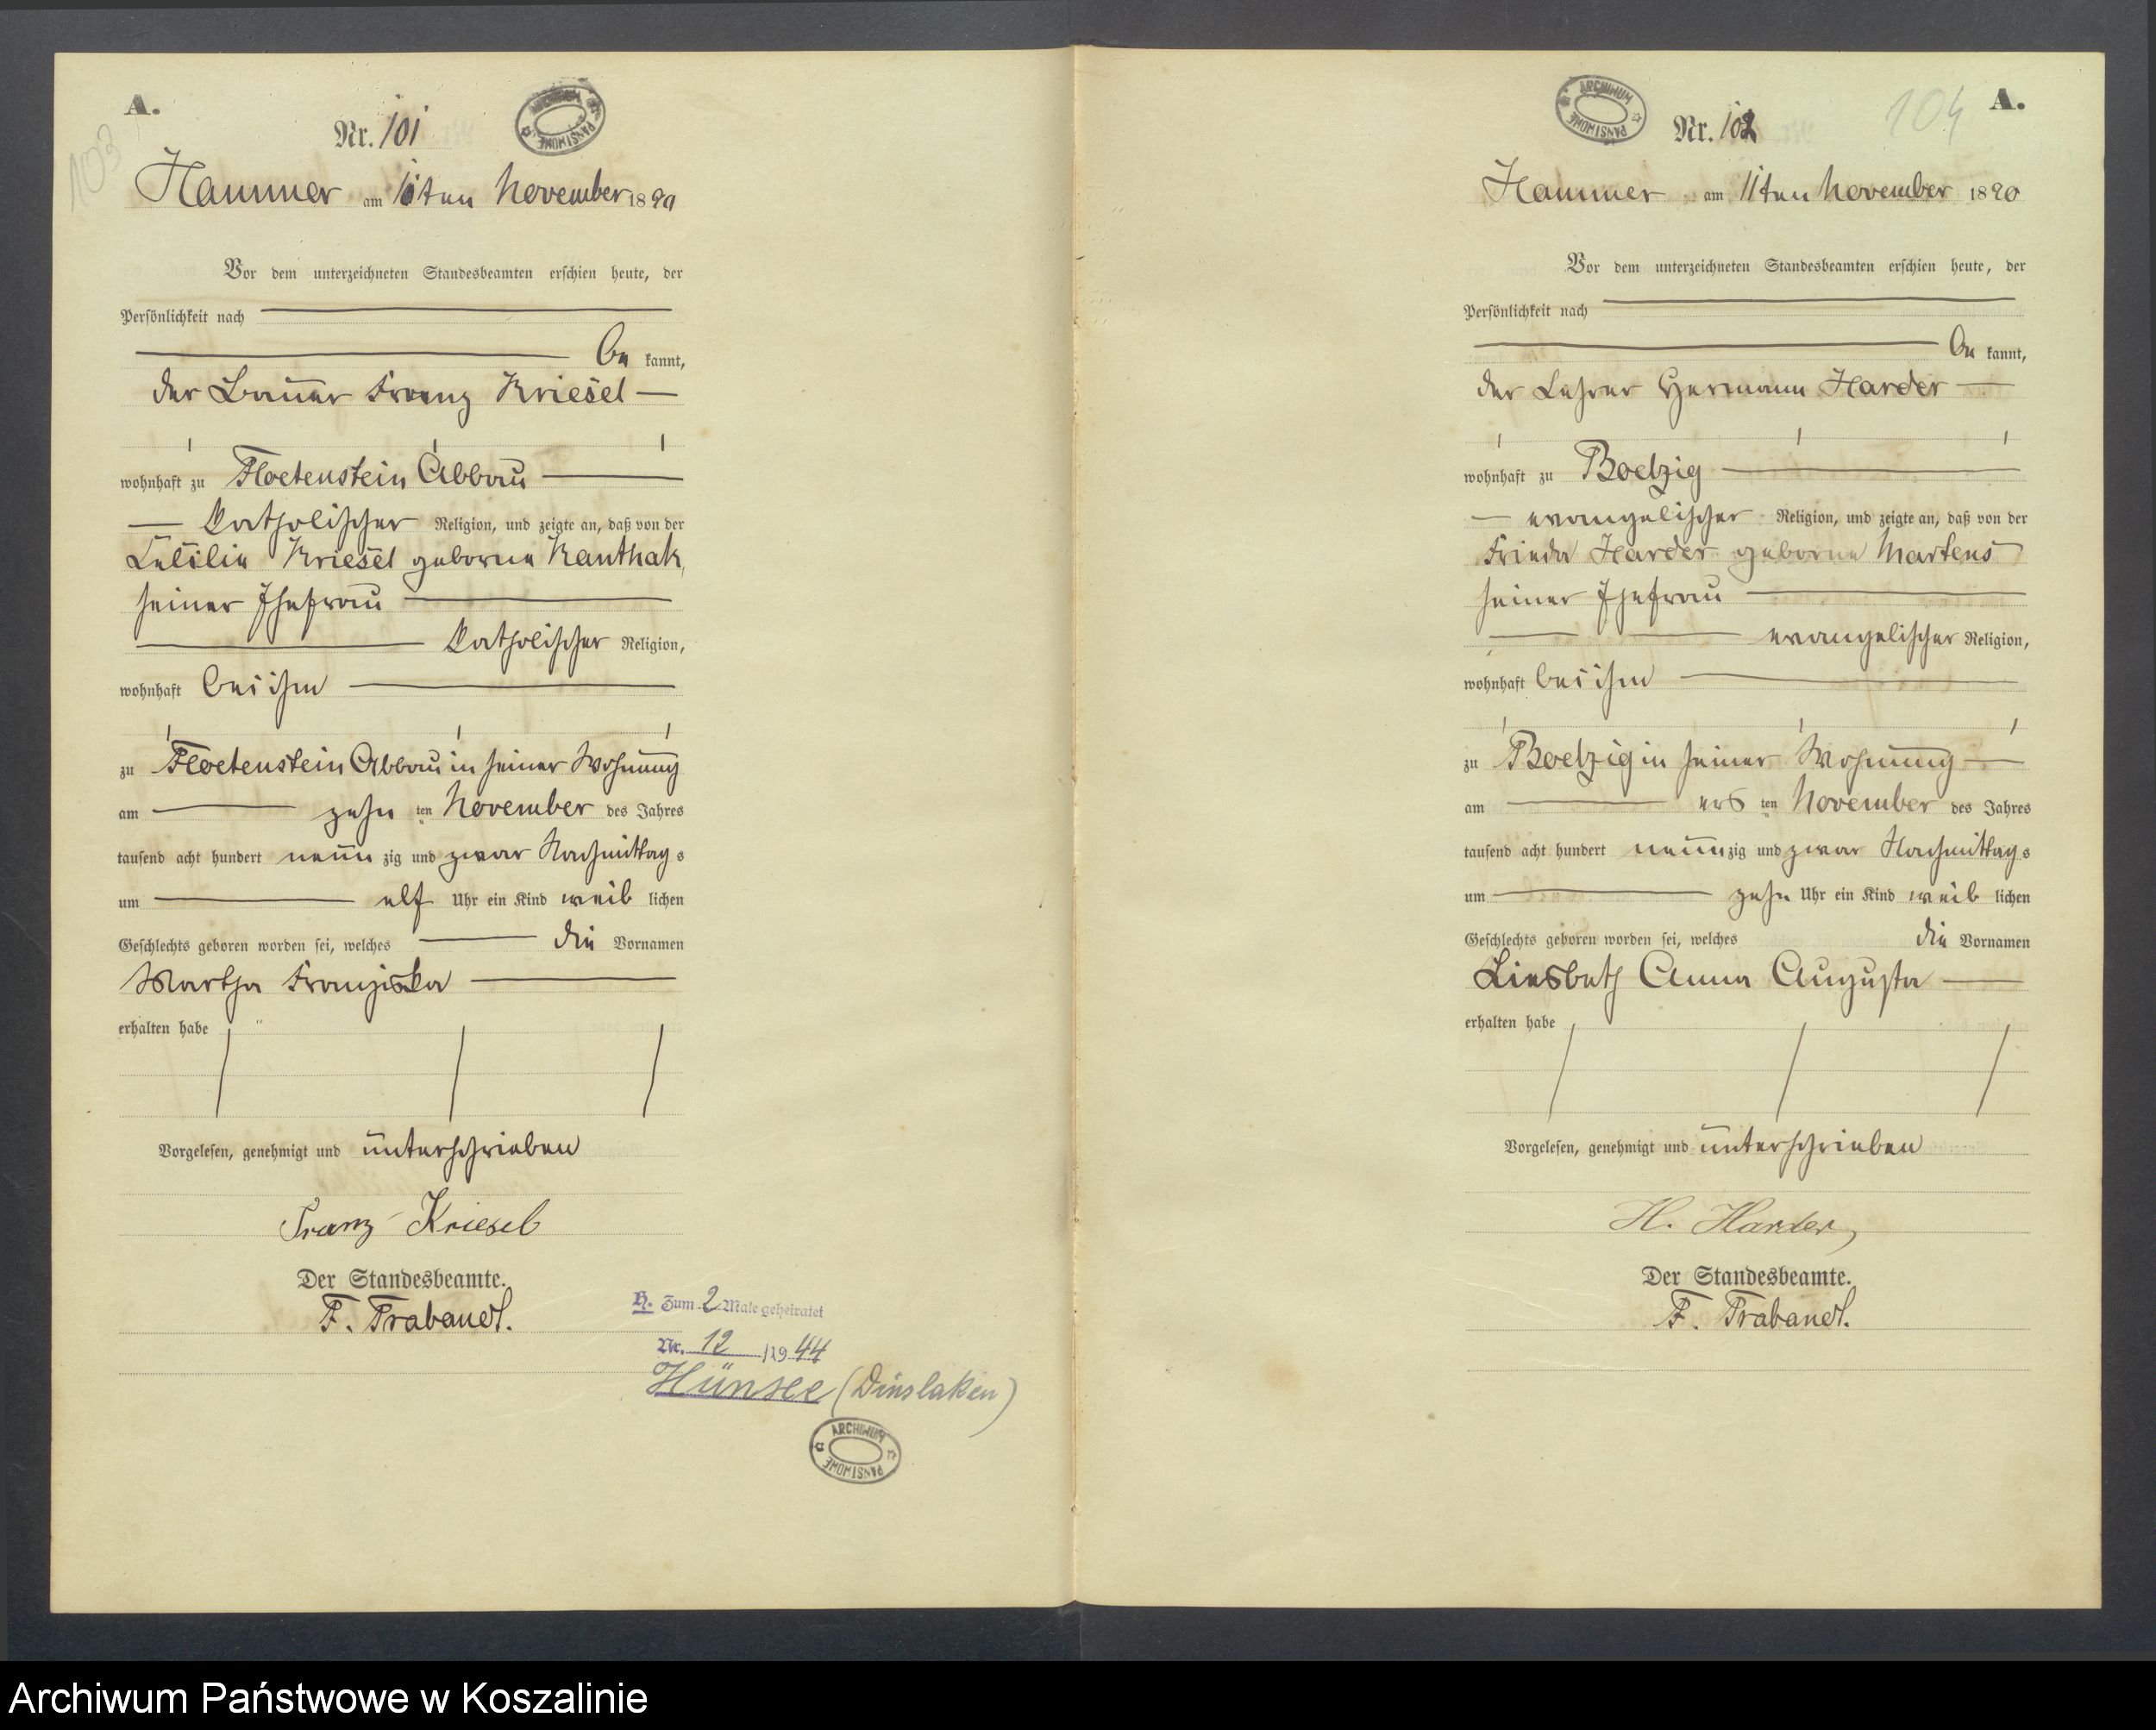 A.
103
Nr. 101
ARCHIWUM PAŃSTWOWE
Hammer am ten November 1890
Vor dem unterzeichneten Standesbeamten erschien heute, der
Persönlichkeit nach
be kannt,
der Bauer Franz Kriesel
wohnhaft zu Floetenstein Abbau
katholischer Religion, und zeigte an, daß von der
Cecilie Kriesel geborne Kanthak,
seiner Ehefrau
katholischer Religion,
wohnhaft bei ihm
zu Floetenstein Abbau in seiner Wohnung
am zehn ten November des Jahres
tausend acht hundert neun zig und zwar Nachmittag s
um elf Uhr ein Kind weib lichen
Geschlechts geboren worden sei, welches die Vornamen
Martha Franziska
erhalten habe
Vorgelesen, genehmigt und unterschrieben
Franz Kriesel
Der Standesbeamte.
F. Trabandt.
H. Zum 2 Male geheiratet
Nr. 12 /1944
Hünxe (Dinslaken)
ARCHIWUM PAŃSTWOWE
104
A.
ARCHIWUM PAŃSTWOWE
Nr. 102
Hammer am 11ten November 1890
Vor dem unterzeichneten Standesbeamten erschien heute, der
Persönlichkeit nach
be kannt,
der Lehrer Hermann Harder
wohnhaft zu Boelzig
evangelischer Religion, und zeigte an, daß von der
Frieda Harder geborne Martens
seiner Ehefrau
evangelischer Religion,
wohnhaft bei ihm
zu Boelzig in seiner Wohnung
am ers ten November des Jahres
tausend acht hundert neun zig und zwar Nachmittag s
um zehn Uhr ein Kind weib lichen
Geschlechts geboren worden sei, welches die Vornamen
Liesbeth Anna Augusta
erhalten habe
Vorgelesen, genehmigt und unterschrieben
H. Harder,
Der Standesbeamte.
F. Trabandt.
Archiwum Państwowe w Koszalinie